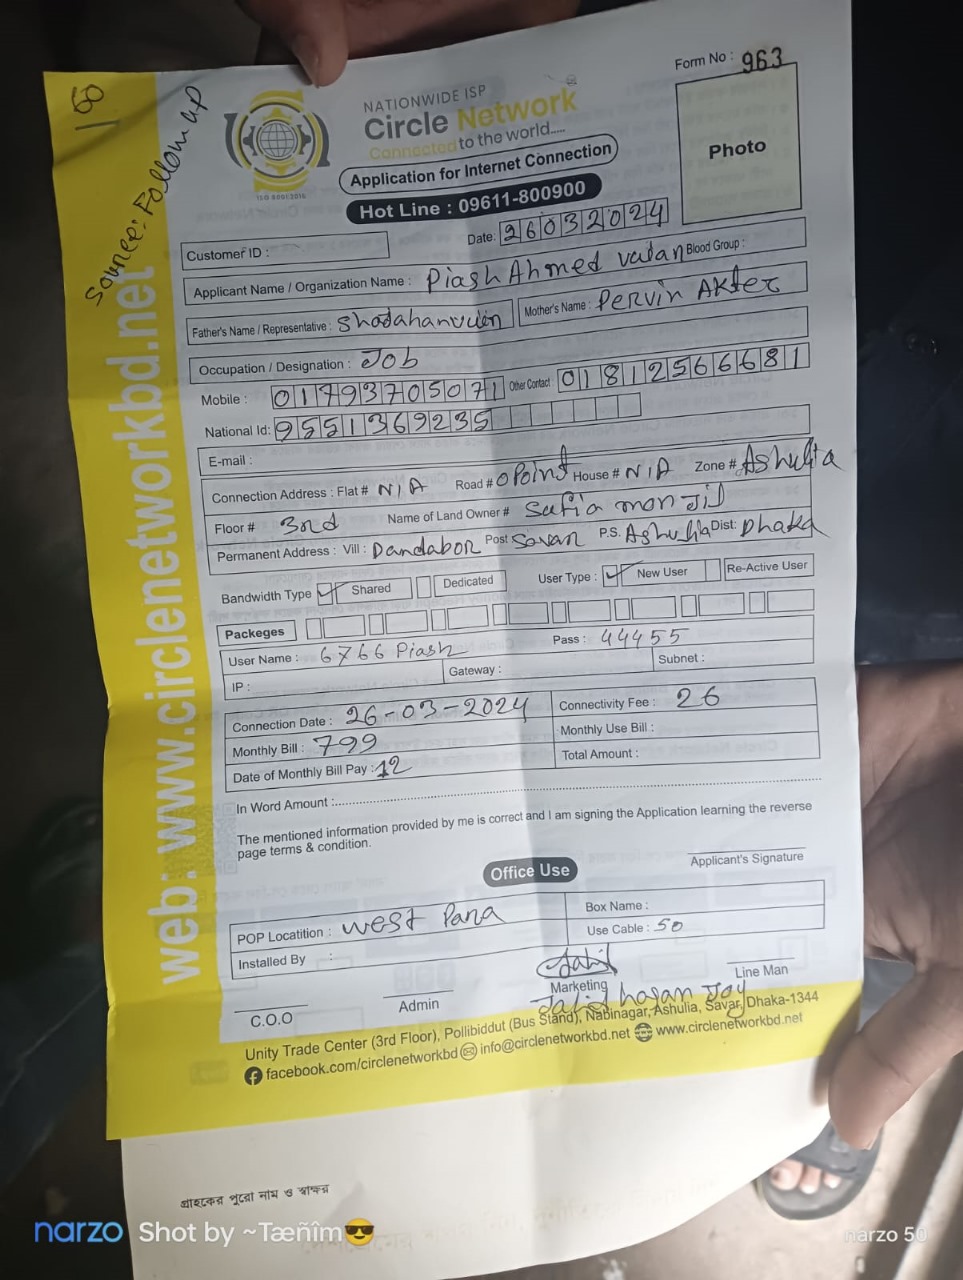 Form No : 963
160
Source: Follow up
NATIONWIDE ISP
Circle Network
Connected to the world.....
ISO 9001:2015
Application for Internet Connection
Hot Line : 09611-800900
Photo
Customer ID :
Date: 26032024
Applicant Name / Organization Name : Piash Ahmed Blood Group :
Father's Name / Representative : Mother's Name : Pervin Akter
Occupation / Designation : Job
Mobile : 01793705071 Other Contact : 01812566681
National Id: 9551369235
E-mail :
Connection Address : Flat # N/A Road # 0 Point House # N/A Zone # Ashulia
Floor # 3nd Name of Land Owner # Safia monjil
Permanent Address : Vill : Dandabor Post Savar P.S. Ashulia Dist: Dhaka
Bandwidth Type Shared Dedicated User Type : New User Re-Active User
Packeges
User Name : 6766 Piash Pass : 44455
IP : Gateway : Subnet :
Connection Date : 26-03-2024 Connectivity Fee : 26
Monthly Bill : 799 Monthly Use Bill :
Date of Monthly Bill Pay : 12 Total Amount :
In Word Amount :
The mentioned information provided by me is correct and I am signing the Application learning the reverse
page terms & condition.
Applicant's Signature
Office Use
POP Locatition : West Para Box Name :
Installed By : Use Cable : 50
C.O.O Admin Marketing Line Man
hasan Joy
Unity Trade Center (3rd Floor), Pollibiddut (Bus Stand), Nabinagar, Ashulia, Savar, Dhaka-1344
facebook.com/circlenetworkbd info@circlenetworkbd.net www.circlenetworkbd.net
web: www.circlenetworkbd.net
গ্রাহকের পুরো নাম ও স্বাক্ষর
narzo Shot by ~Tæñîm😎
narzo 50